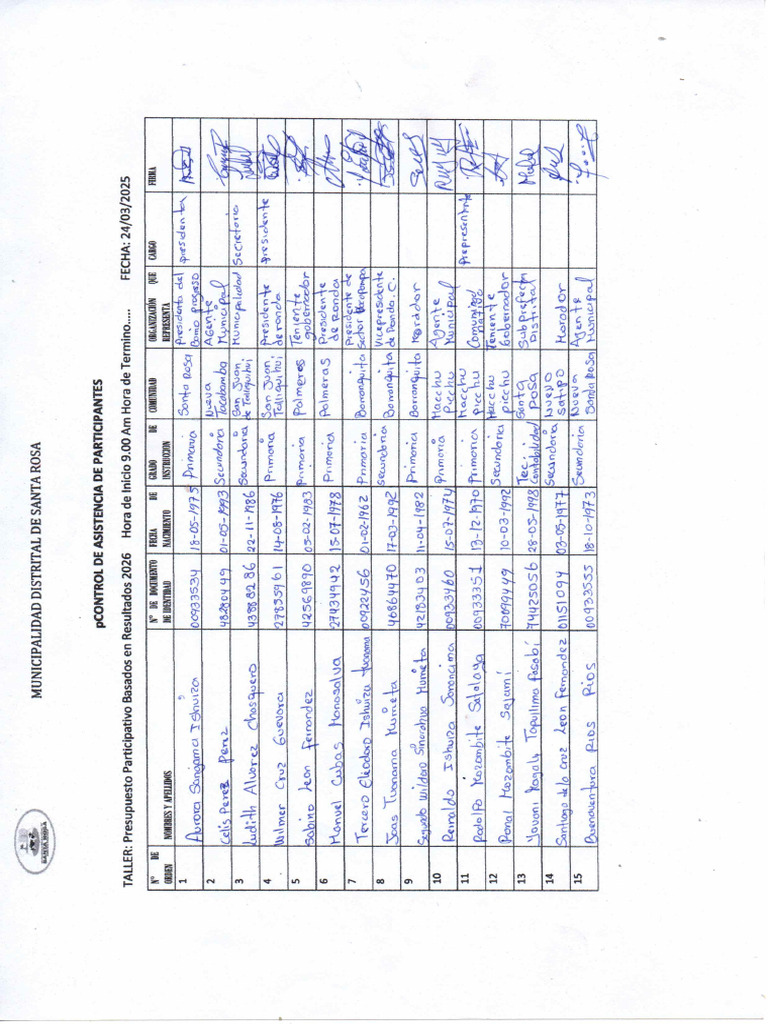 MUNICIPALIDAD DISTRITAL DE SANTA ROSA
SANTA ROSA
pCONTROL DE ASISTENCIA DE PARTICIPANTES
TALLER: Presupuesto Participativo Basados en Resultados 2026 Hora de Inicio 9.00 Am Hora de Termino..... FECHA: 24/03/2025
N° DE ORDEN NOMBRES Y APELLIDOS N° DE DOCUMENTO DE IDENTIDAD FECHA DE NACIMIENTO GRADO DE INSTRUCCION COMUNIDAD ORGANIZACIÓN QUE REPRESENTA CARGO FIRMA
1 Aurora Sangama Ishuiza 00933534 18-05-1975 Primaria Santa Rosa Presidenta del Barrio progreso presidenta
2 Celis Perez Perez 48280499 01-05-1993 Secundaria Nueva Tacabamba Agente Municipal
3 Judith Alvarez Chasquero 43882286 22-11-1986 Secundaria San Juan de Talliquihui Municipalidad Secretaria
4 Wilmer Cruz Guevara 27835961 14-08-1976 Primaria San Juan Talliquihui Presidente de ronda Presidente
5 Sabino Leon Fernandez 42569890 05-02-1983 Primaria Palmeras Teniente gobernador
6 Manuel Cubas Manosalva 27434942 15-07-1978 Primaria Palmeras Presidente de Ronda
7 Tercero Eleodoro Ishuiza Tuanama 00922456 01-02-1962 Primaria Barranquita Presidente de Sector
8 Joas Tuanama Mumeta 40864470 17-03-1992 secundaria Barranquita Vicepresidente de Ronda. C.
9 Segundo Wildoro Sinarahua Mumeta 42183403 11-04-1982 Primaria Barranquita Morador
10 Reinaldo Ishuiza Sarancima 00933460 15-07-1974 Primaria Macchu Picchu Agente Municipal
11 Rodolfo Mozombite Salalaya 00933351 13-12-1970 Primaria Macchu Picchu Comunidad nativa Representante
12 Ronal Mozombite Sajami 70809449 10-03-1992 Secundaria Macchu picchu Teniente Gobernador
13 Yovani Magaly Tapullima Pasabi 74425056 28-05-1998 Tec. Contabilidad Santa Rosa SubPrefecta Distrital
14 Santiago de la Cruz Leon Fernandez 01151094 03-05-1977 Secundaria Nuevo Satipo Morador
15 Buenaventura Rios Rios 00933555 18-10-1973 Secundaria Nueva Santa Rosa Agente Municipal